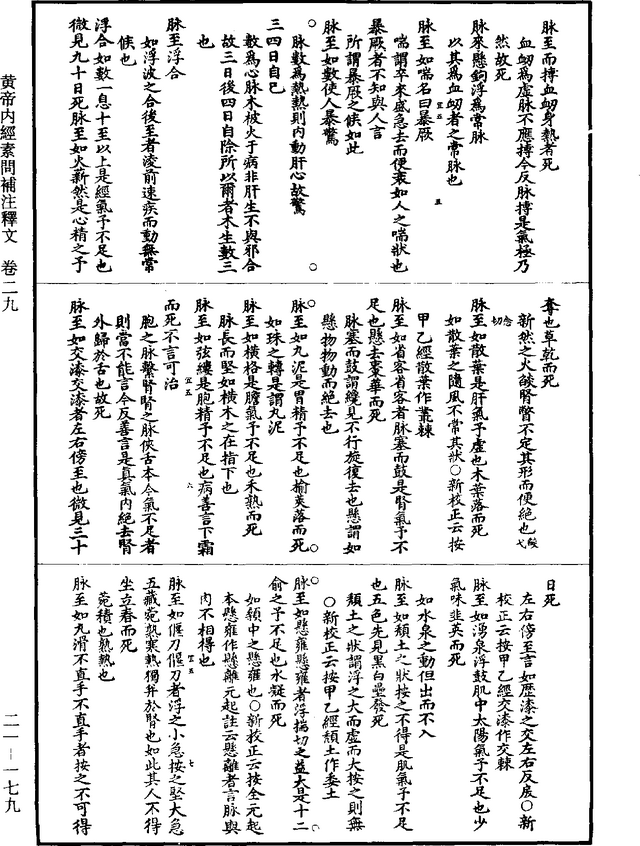 脉至而搏血衂身熱者死
血衂爲虛脉不應搏今反脉搏是氣極乃
然故死
脉來懸鉤浮爲常脉
以其爲血衂者之常脉也
脉至如喘名曰暴厥
喘謂卒來盛急去而便衰如人之喘狀也
暴厥者不知與人言
所謂暴厥之候如此
脉至如數使人暴驚
脉數爲熱熱則內動肝心故驚
三四日自已
數爲心脉木被火于病非肝生不與邪合
故三日後四日自除所以爾者木生數三
也
脉至浮合
如浮波之合後至者凌前速疾而動無常
候也
浮合如數一息十至以上是經氣予不足也
微見九十日死脉至如火薪然是心精之予
奪也草乾而死
新然之火燄瞥瞥不定其形而便絕也
脉至如散葉是肝氣予虛也木葉落而死
如散葉之隨風不常其狀〇新校正云按
甲乙經散葉作叢棘
脉至如省客省客者脉塞而鼓是腎氣予不
足也懸去棗華而死
脉塞而鼓謂纔見不行旋復去也懸謂如
懸物物動而絕去也
脉至如丸泥是胃精予不足也榆莢落而死
如珠之轉是謂丸泥
脉至如橫格是膽氣予不足也禾熟而死
脉長而堅如橫木之在指下也
脉至如弦縷是胞精予不足也病善言下霜
而死不言可治
胞之脉繫腎腎之脉俠舌本今氣不足者
則當不能言今反善言是真氣內絕去腎
外歸於舌也故死
脉至如交漆交漆者左右傍至也微見三十
日死
左右傍至言如瀝漆之交左右反戾〇新
校正云按甲乙經交漆作交棘
脉至如湧泉浮鼓肌中太陽氣予不足也少
氣味韭英而死
如水泉之動但出而不入
脉至如頹土之狀按之不得是肌氣予不足
也五色先見黑白壘發死
頹土之狀謂浮之大而虛而大按之則無
〇新校正云按甲乙經頹土作委土
脉至如懸雍懸雍者浮揣切之益大是十二
俞之予不足也水凝而死
如顙中之懸雍也〇新校正云按全元起
本懸雍作懸離元起註云懸離者言脉與
肉不相得也
脉至如偃刀偃刀者浮之小急按之堅大急
五藏菀熟寒熱獨并於腎也如此其人不得
坐立春而死
菀積也熟熱也
脉至如丸滑不直手不直手者按之不可得
黄帝内經素問補注釋文　卷二九
二一—一七九